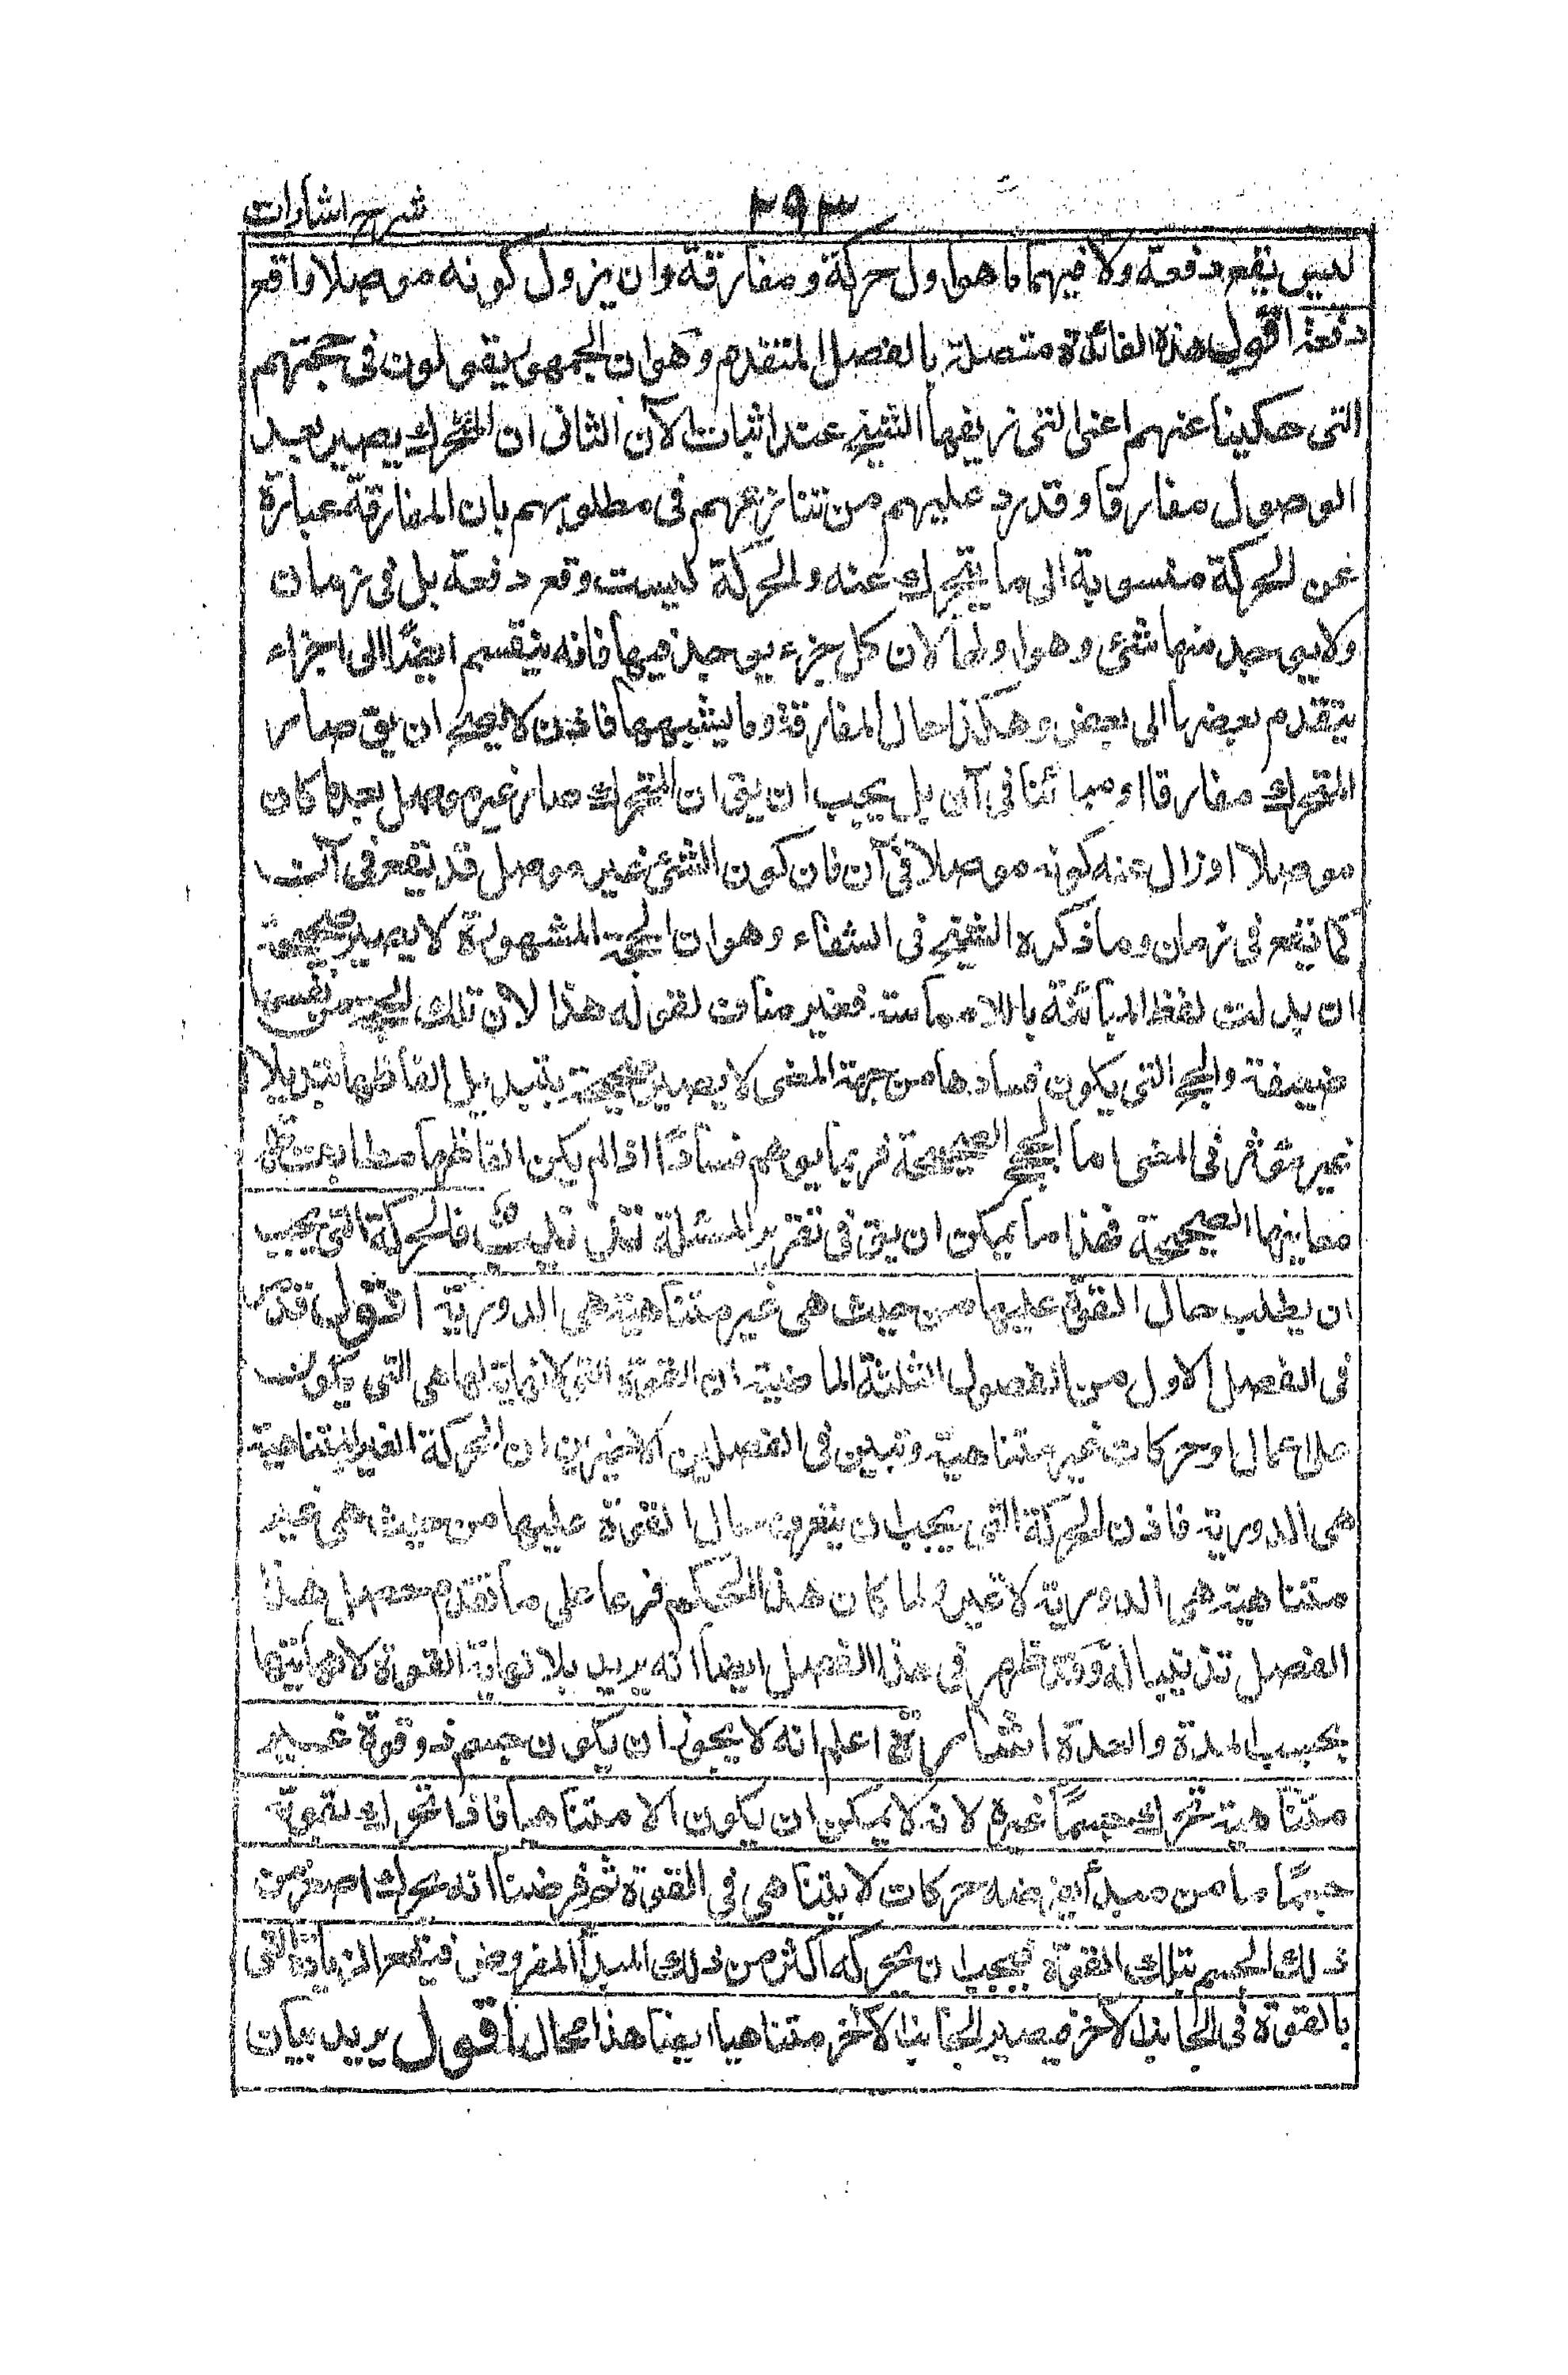 شرح اشارات
٢٩٣
ليس يقع دفعة ولا فيهما ما هو اول حركة ومفارقة وان يزول كونه موصلا واقع
دفعة اقول هذه الفائدة متصلة بالفصل المتقدم وهو ان الجمهور يقولون فى حجتهم
التى حكينا عنهم اعنى التى زيفها الشيخ عند اثبات الآن الثانى ان المتحرك يصير بعد
الوصول مفارقا وقد رد عليهم من تنازعهم فى مطلوبهم بان المفارقة عبارة
عن الحركة منسوبة الى ما يتحرك عنه والحركة ليست وقع دفعة بل فى زمان
ولا يوجد منها شئ وهو اولها لان كل جزء يوجد فيها فانه ينقسم ايضًا الى اجزاء
يتقدم بعضها الى بعض وهكذا حال المفارقة وما يشبهها فاذن لا يصح ان يق صار
المتحرك مفارقا او مبائنا فى آن بل يجب ان يق ان المتحرك صار غير موصل بعد ما كان
موصلا او زال عنه كونه موصلا فى آن فان كون الشئ غير موصل قد يقع فى آن
كما يقع فى زمان وما ذكره الشيخ فى الشفاء وهو ان الحجة المشهورة لا يصير صحيحة
ان بدلت لفظ المبائنة باللامماسة فغير مناف لقوله هذا لان تلك الحجة نفسها
ضعيفة والحجج التى يكون فسادها من جهة المعنى لا يصير صحيحة بتبديل الفاظها تبديلا
غير مؤثر فى المعنى اما الحجج الصحيحة فربما يوهم فسادًا اذا لم يكن الفاظها مطابقة
معاينها الصحيحة فهذا ما يمكن ان يق فى تقرير المسئلة تذنيب فالحركة التى يجب
ان يطلب حال القوة عليها من حيث هى غير متناهية هى الدورية اقول قد
فى الفصل الاول من الفصول الثلثة الماضية ان القوة التى لا نهاية لها هى التى يكون
على اعمال او حركات غير متناهية وتبين فى الفصلين الاخيرين ان الحركة الغير المتناهية
هى الدورية فاذن الحركة التى يجب ان يتعرف حال القوة عليها من حيث هى غير
متناهية هى الدورية لا غير ولما كان هذا الحكم فرعا على ما تقدم جعل هذا
الفصل تذنيبا له وقد ظهر فى هذا الفصل ايضا انه يريد بلا نهاية القوة لا نهايتها
بحسب المدة والعدة اشارة اعلم انه لا يجوز ان يكون جسم ذو قوة غير
متناهية تحرك جسمًا غيره لانه لا يمكن ان يكون الا متناهيا فاذا تحرك بقوته
جسمًا ما من مبدأ يفرضه حركات لا يتناهى فى القوة ثم فرضنا انه يحرك اصغر من
ذلك الجسم بتلك القوة فيجب ان يحركه اكثر من ذلك المبدأ المفروض فيقع الزيادة التى
بالقوة فى الجانب الآخر فيصير الجانب الآخر متناهيا ايضا هذا محال اقول يريد بيان